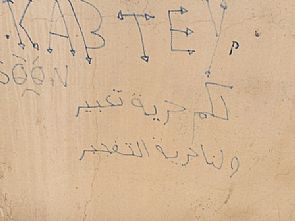 KABTEY
SOON
لكم حرية تعبير
ولنا حرية التفكير